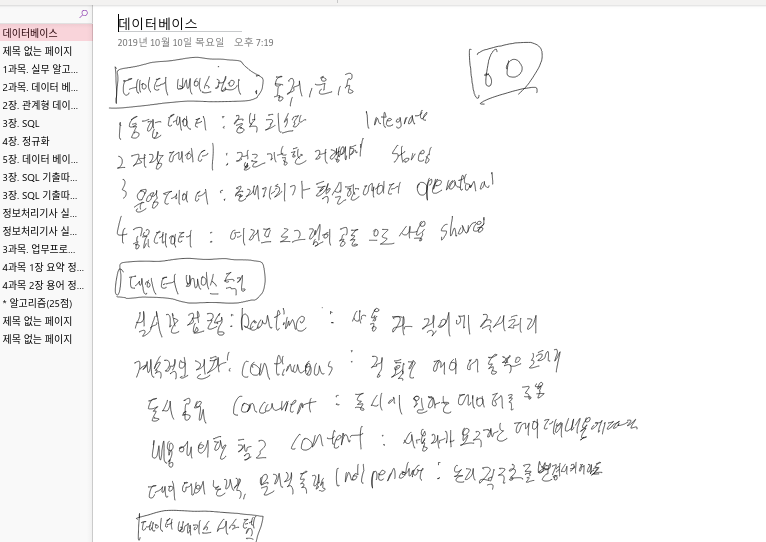 데이터베이스
2019년 10월 10일 목요일 오후 7:19
데이터베이스
제목 없는 페이지
1과목. 실무 알고...
2과목. 데이터 베...
2장. 관계형 데이...
3장. SQL
4장. 정규화
5장. 데이터 베이...
3장. SQL 기출따...
3장. SQL 기출따...
정보처리기사 실...
정보처리기사 실...
3과목. 업무프로...
4과목 1장 요약 정...
4과목 2장 용어 정...
* 알고리즘(25점)
제목 없는 페이지
제목 없는 페이지
데이터 베이스 정의 : 통, 저, 운, 공
60
1 통합 데이터 : 중복 최소화 Integrate
2 저장 데이터 : 접근 가능한 저장매체 Stored
3 운영 데이터 : 존재가치가 확실한 데이터 operational
4 공용 데이터 : 여러 프로그램이 공동으로 사용 shared
데이터 베이스 특징
실시간 접근성 : Realtime : 사용자 질의에 즉시처리
계속적인 변화 : continuous : 정확한 데이터
동시 공유 concurrent : 동시에 원하는 데이터를 공용
내용에 의한 참고 content : 사용자가 요구하는 데이터 내용에 따라
데이터의 논리적, 물리적 독립 independence : 논리적 구조를 변경시켜도
데이터베이스 시스템